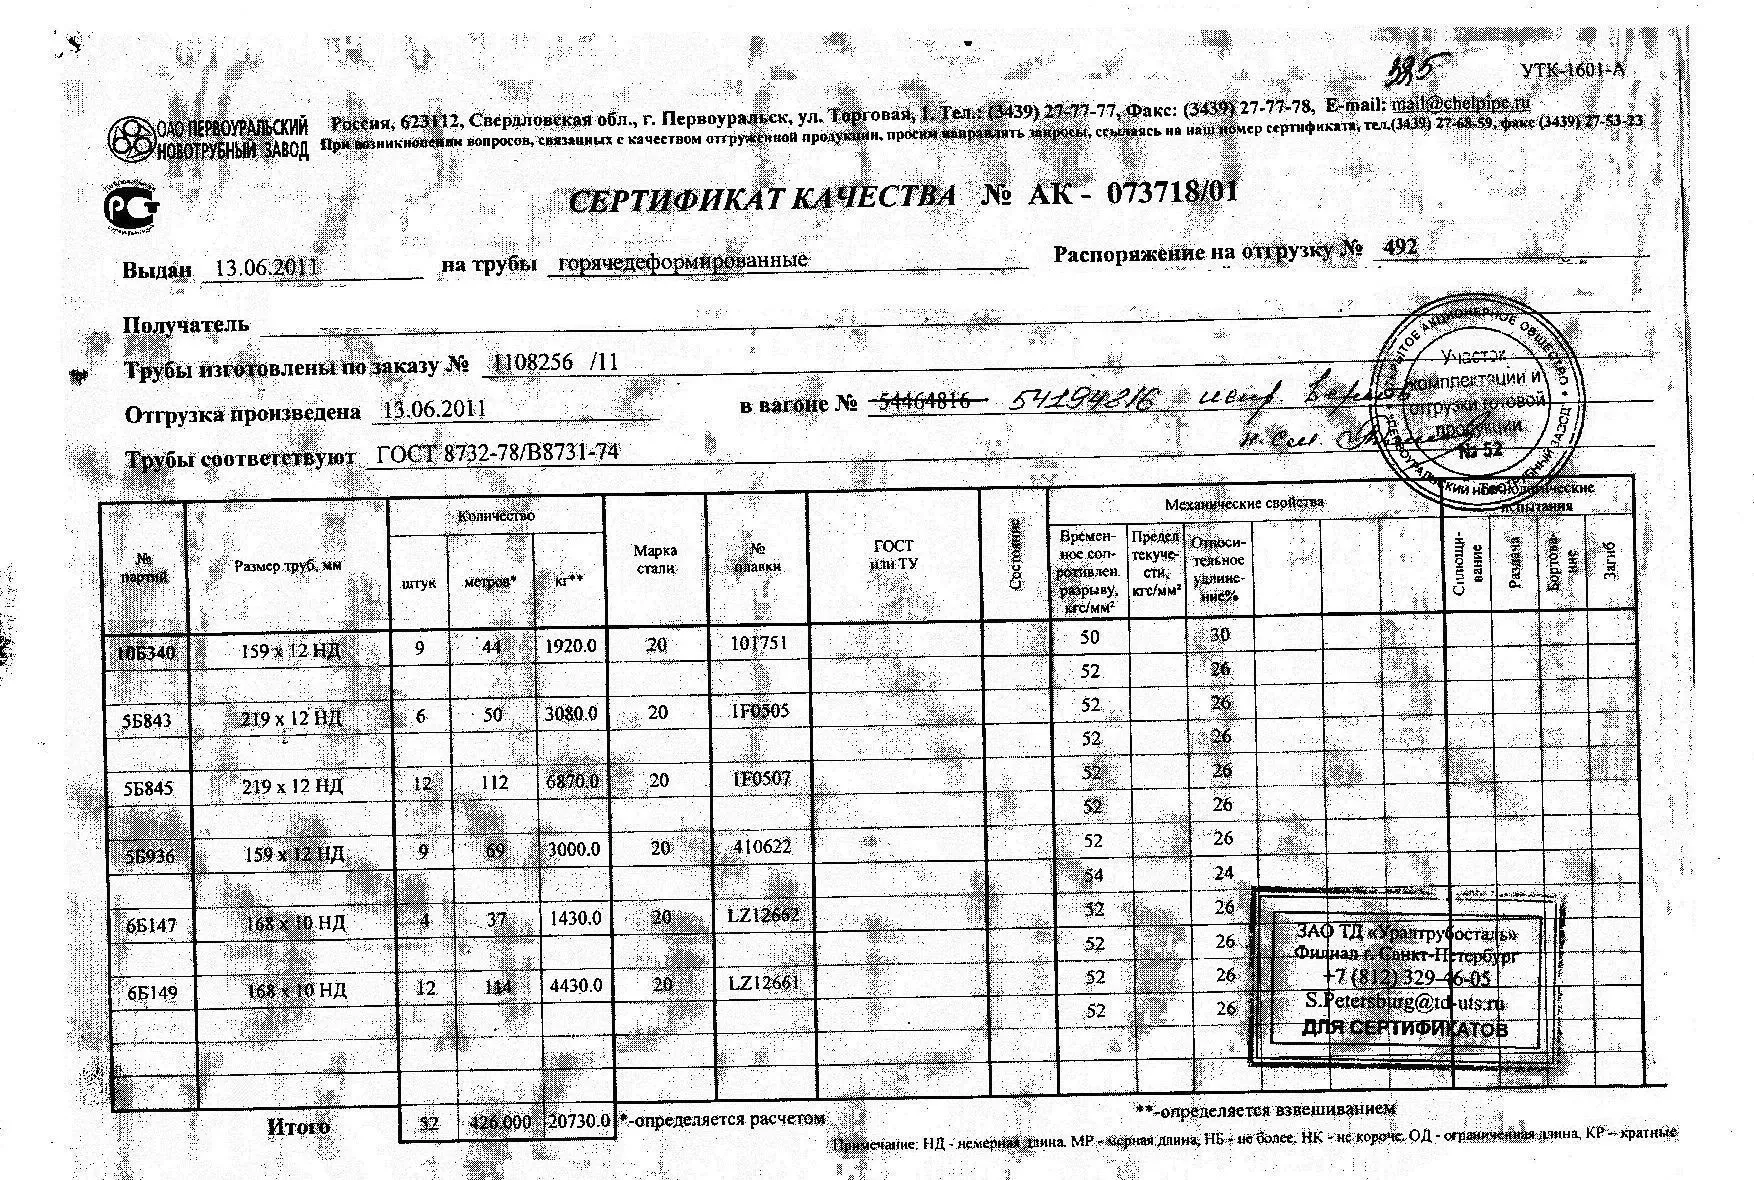 325
УТК-1601-А
ОАО ПЕРВОУРАЛЬСКИЙ
НОВОТРУБНЫЙ ЗАВОД
Россия, 623112, Свердловская обл., г. Первоуральск, ул. Торговая, 1. Тел.: (3439) 27-77-77, Факс: (3439) 27-77-78, E-mail: mail@chelpipe.ru
При возникновении вопросов, связанных с качеством отгруженной продукции, просим направлять запросы, ссылаясь на наш номер сертификата, тел.(3439) 27-68-59, факс (3439) 27-53-23
РСТ
СЕРТИФИКАТ КАЧЕСТВА № АК - 073718/01
Выдан 13.06.2011 на трубы горячедеформированные Распоряжение на отгрузку № 492
Получатель
Трубы изготовлены по заказу № 1108256 /11
Отгрузка произведена 13.06.2011 в вагоне № 54464816 54194816
Трубы соответствуют ГОСТ 8732-78/В8731-74
Участок
комплектации и
отгрузки готовой
продукции
№ 52
№ партии Размер труб, мм Количество штук метров* кг** Марка стали № плавки ГОСТ или ТУ Состояние Механические свойства Времен-ное соп-ротивлен. разрыву, кгс/мм² Предел текуче-сти, кгс/мм² Относи-тельное удлине-ние% Технологические испытания Сплющи-вание Раздача Бортова-ние Загиб
10Б340 159 х 12 НД 9 44 1920.0 20 101751 50 30
52 26
5Б843 219 х 12 НД 6 50 3080.0 20 1F0505 52 26
52 26
5Б845 219 х 12 НД 12 112 6870.0 20 1F0507 52 26
52 26
5Б936 159 х 12 НД 9 69 3000.0 20 410622 52 26
54 24
6Б147 168 х 10 НД 4 37 1430.0 20 LZ12662 52 26
52 26
6Б149 168 х 10 НД 12 114 4430.0 20 LZ12661 52 26
52 26
ЗАО ТД «Уралтрубосталь»
Филиал г. Санкт-Петербург
+7 (812) 329-46-05
S.Petersburg@td-uts.ru
ДЛЯ СЕРТИФИКАТОВ
Итого 52 426.000 20730.0 *-определяется расчетом **-определяется взвешиванием
Примечание: НД - немерная длина, МР - мерная длина, НБ - не более, НК - не короче, ОД - ограниченная длина, КР - кратные